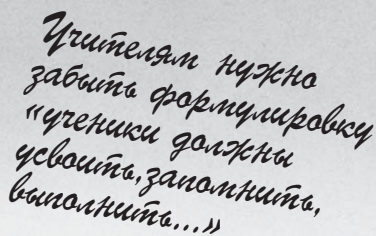 Учителям нужно
забыть формулировку
«ученики должны
усвоить, запомнить,
выполнить...»